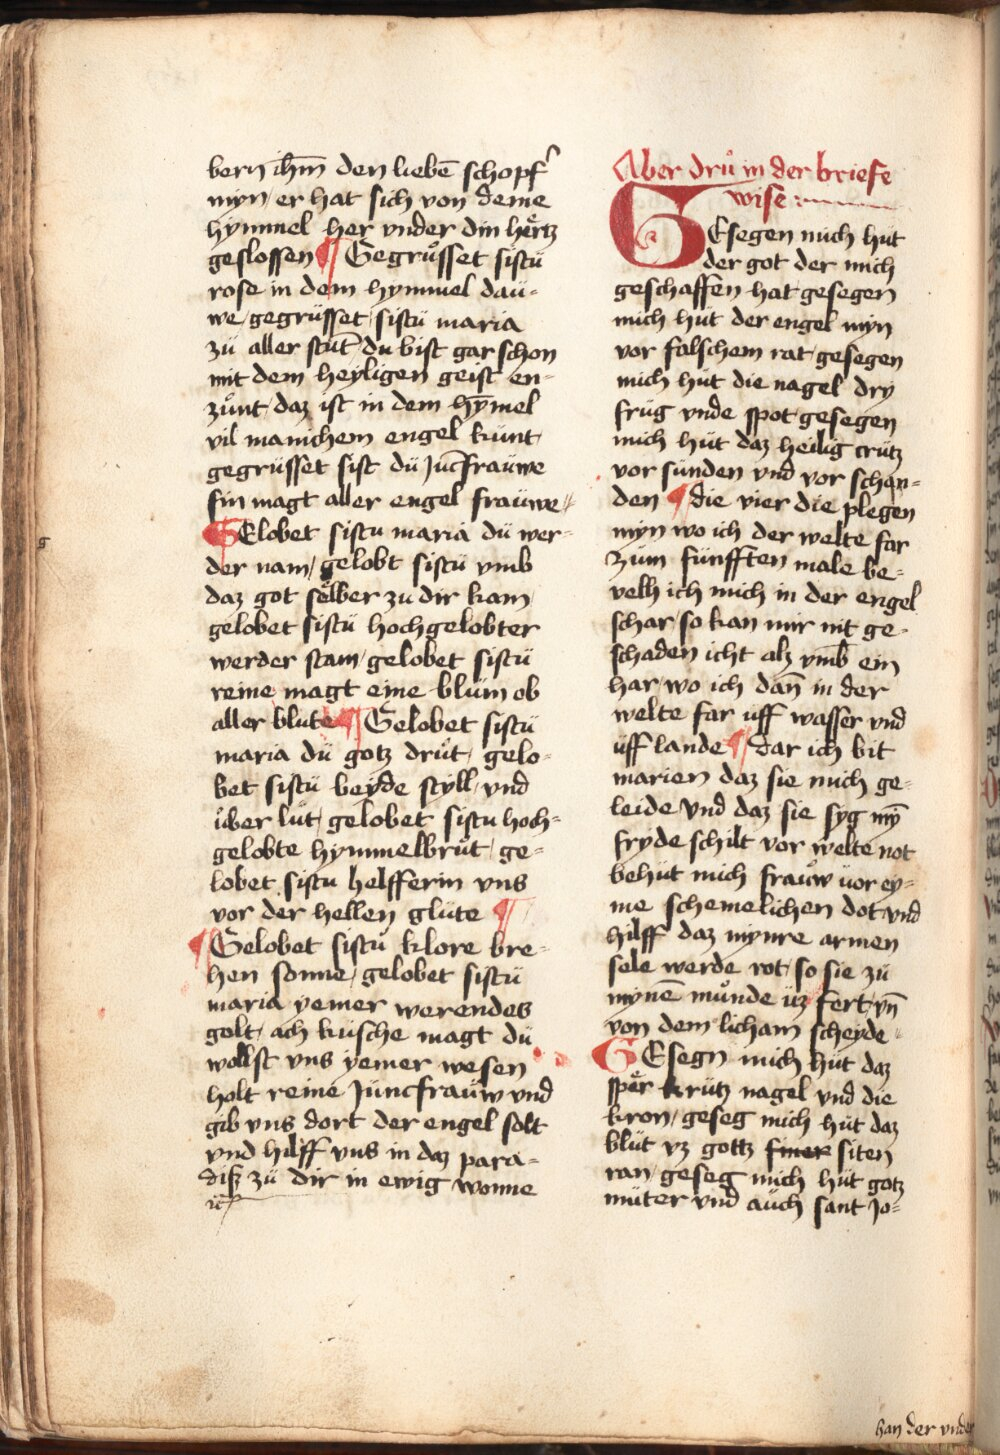 bern ih̄m den liebē schopf
myn / er hat sich von deme
hymmel her vnder din hertz
geslossen ¶ Gegruͦsset sistu
rose in dem hymmel dau-
we / gegrüsset sistü maria
zü aller stūt du bist gar schon
mit dem heyligen geist en-
zuͦnt daz ist in dem hȳmel
vil manichem engel kunt
gegrüsset sist dü Jūcfrauwe
fin magt aller engel frauwe
GElobet sistu maria dü wer-
der nam / gelobt sistü vmb
daz got selber zu dir kam
gelobet sistü hochgelobter
werder stam / gelobet sistü
reine magt eyne blüm ob
aller blute ¶ Gelobet sistü
maria dü gotz druͦt / gelo-
bet sistü beyde styll / vnd
uͤber lut / gelobet sistu hoch-
gelobte hymmelbrüt / ge-
lobet sistu helfferin vns
vor der hellen glüte ¶
¶ Gelobet sistuͦ klore bre-
hen sonne / gelobet sistü
maria yemer werendes
golt / ach küsche magt dü
wollst vns yemer wesen
holt reine Juncfrauw vnd
gib vns dort der engel solt
vnd hilff vns in daz para-
diß zü dir in ewig wonne
Aber druͦ in der briefe
wise
GEsegen mich hüt
der got der mich
geschaffen hat gesegen
mich hüt der engel myn
vor falschem rat gesegen
mich hüt die nagel dry
früg vnde spot gesegen
mich hüt daz heilig crütz
vor sünden vnd vor schan-
den ¶ die vier die plegen
myn wo ich der welte far
zum fünfften male be-
velh ich mich in der engel
schar / so kan mir nit ge-
schaden icht alz vmb ein
har / wo ich dan̄ in der
welte far uff wasser vnd
uff lande ¶ dar ich bit
marien daz sie mich ge-
leide vnd daz sie syg mȳ
fryde schilt vor welte not
behüt mich frauͦw vor ey-
me schemelichen dot / vnd
hilff daz mynre armen
sele werde rot / so sie zü
mynē muͦnde üz fert vn̄
von dem licham scheyde
GEsegn mich hüt daz
sper krütz nagel vnd die
kron / geseg mich hüt daz
blüt vz gottz siner siten
ran / geseg mich hüt gotz
müter vnd auch sant Jo-
han der vnder